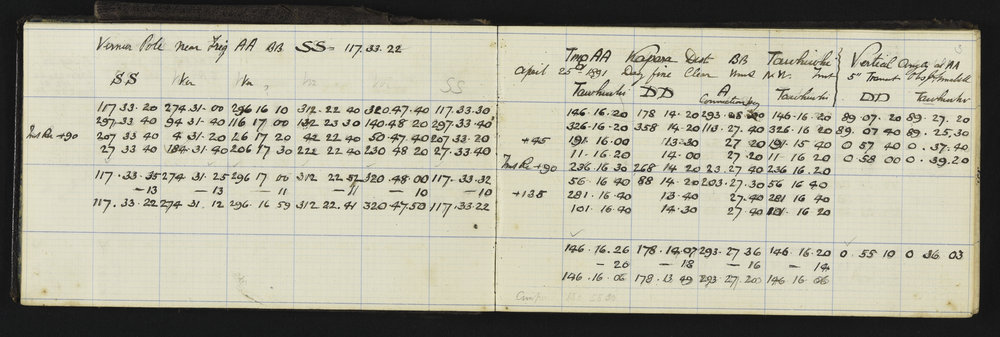 Vernier Pole near Trig AA BB SS = 117.33.22
SS
SS
117 33.20 274 31.00 296 16 10 312 22 40 320.47.40 117.33.30
297.33 40 94 31.40 116 17 00 132 23 30 140.48 20 297.33 40
+90 207 33 40 4 31.20 26 17 20 42 22 40 50 47 40 207 33.20
27 33 40 184.31.40 206 17 30 222 22 40 230 48 20 27.33.40
117.33.35 274 31.25 296 17 00 312 22 52 320.48.00 117.33.32
—13 —13 —11 —11 —10 —10
117.33.22 274 31.12 296.16 59 312.22.41 320 47.50 117.33.22
3
AA Dist BB Tawhiwhi Vertical AA
April 25th 1891 Day fine Clear N.W. 5" Transit
Tawhiwhi DD A Tawhiwhi DD Tawhiwhi
Connection
146.16.20 178 14.20 293.08.20 146.16.20 89.07.20 89.27.20
326.16.20 358 14.20 113.27.40 326.16 20 89.07 40 89.25.30
+45 191.16.00 13.30 27 20 191.15 40 0 57 40 0.37.40
11.16.20 14.00 27.20 11 16 20 0 58 00 0.39.20
+90 236 16 30 268 14 20 23.27.40 236 16.20
56.16 40 88 14.20 203.27.30 56 16 40
+135 281.16 40 13.40 27.40 281 16 40
101.16.40 14.30 27.40 101 16.20
146.16.26 178.14.07 293.27 36 146.16.20 0.55 10 0 36 03
—20 —18 —16 —14
146.16.06 178.13 49 293 27.20 146 16 06